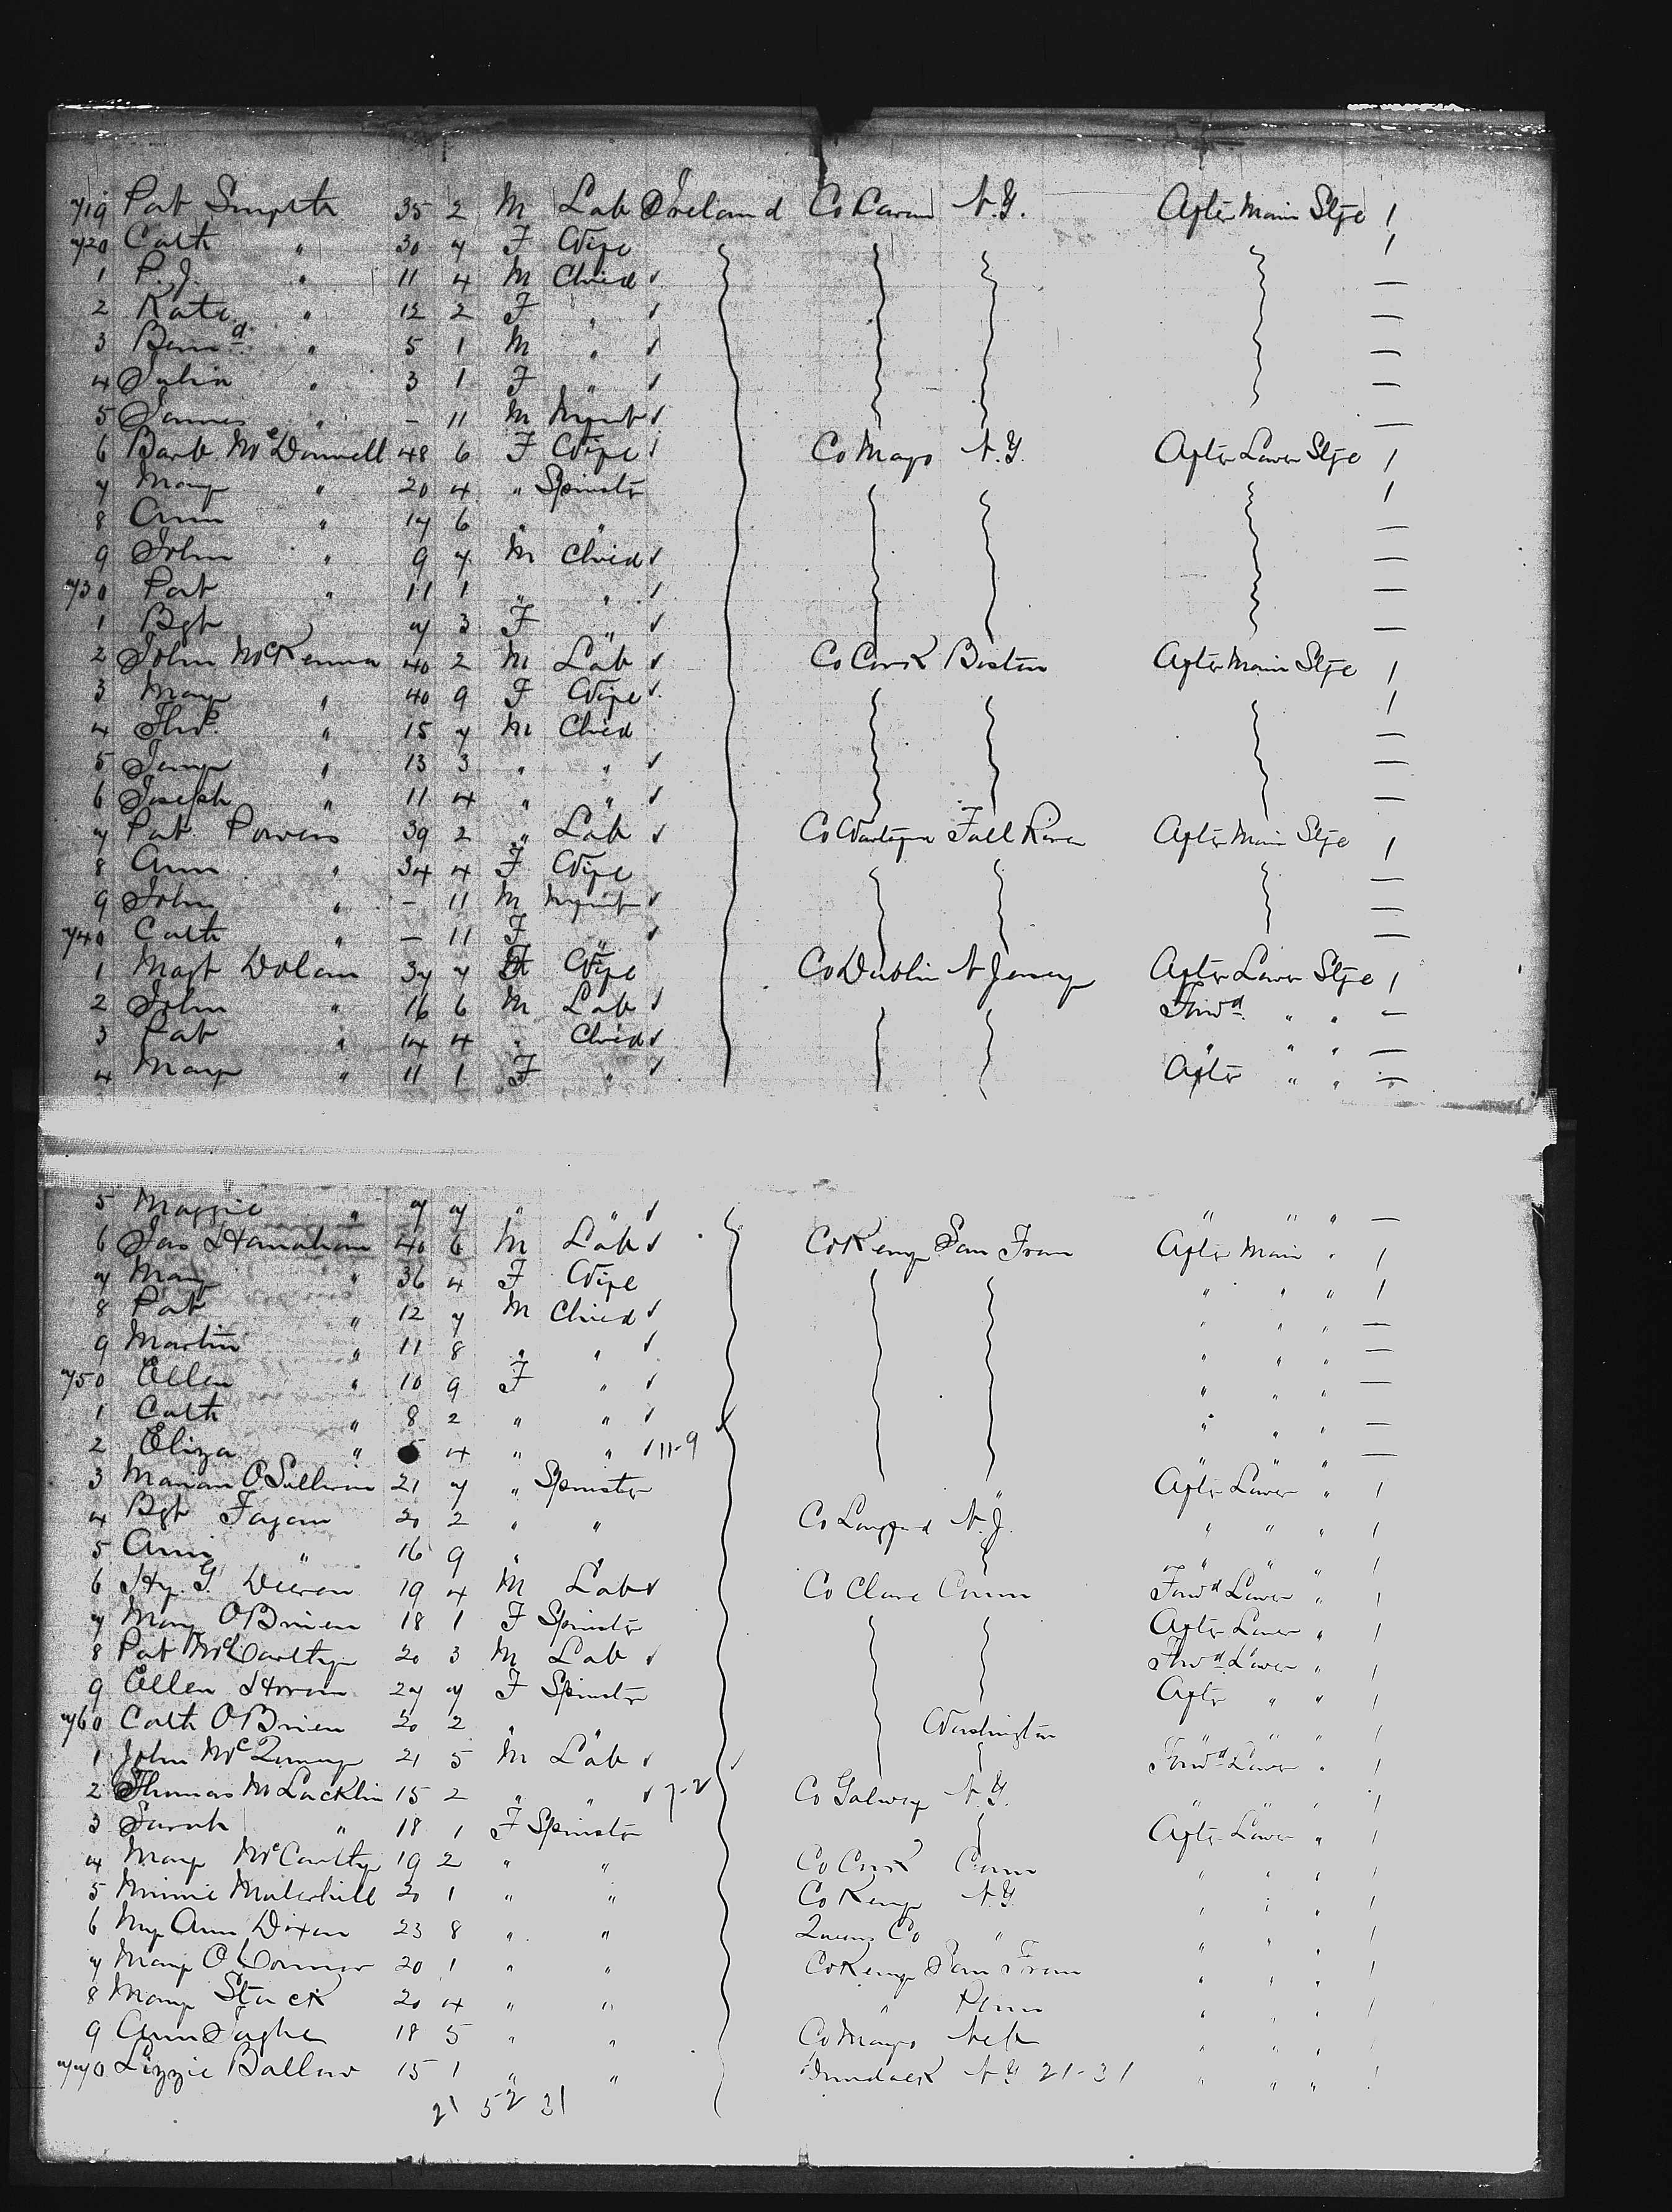 719 Pat Smyth 35 2 M Lab Ireland Co Cavan N.Y. After Main Stge 1
720 Cath " 30 7 F Wife 1
1 P.J. " 11 4 M Child ✓ —
2 Kate " 12 2 F " ✓ —
3 Bernd " 5 1 M " ✓ —
4 Julia " 3 1 F " ✓ —
5 James " - 11 M Infnt ✓ —
6 Barb McDonnell 48 6 F Wife ✓ Co Mayo N.Y. After Lower Stge 1
7 Mary " 20 4 " Spinstr 1
8 Ann " 17 6 " " —
9 John " 9 7 M Child ✓ —
730 Pat " 11 1 " " ✓ —
1 Bgt " 7 3 F " ✓ —
2 John McKenna 40 2 M Lab ✓ Co Cork Boston After Main Stge 1
3 Mary " 40 9 F Wife ✓ 1
4 Thos " 15 7 M Child —
5 Jerry " 13 3 " " ✓ —
6 Joseph " 11 4 " " ✓ —
7 Pat Powers 39 2 " Lab ✓ Co Fall River After Main Stge 1
8 Ann " 34 4 F Wife —
9 John " - 11 M Infnt ✓ —
740 Cath " - 11 F " ✓ —
1 Magt Dolan 37 7 F Wife Co Dublin N Jersey After Lower Stge 1
2 John " 16 6 M Lab ✓ Forwd " " —
3 Pat " 14 4 " Child ✓ " " " —
4 Mary " 11 1 F " ✓ After " " —
5 Maggie " 7 7 " " ✓ " " " —
6 Jas Hanahan 40 6 M Lab ✓ Co Kerry San Fran After Main " 1
7 Mary " 36 4 F Wife " " " 1
8 Pat " 12 7 M Child ✓ " " " —
9 Martin " 11 8 " " ✓ " " " —
750 Ellen " 10 9 F " ✓ " " " —
1 Cath " 8 2 " " ✓ " " " —
2 Eliza " 5 4 " " ✓ 11-9 " " " —
3 Marian O Sullivan 21 7 " Spinster " After Lower " 1
4 Bgt Fagan 20 2 " " Co Longford N.J. " " " 1
5 Ann " 16 9 " " " " " 1
6 Hy. G. 19 4 M Lab ✓ Co Clare Conn Forwd Lower " 1
7 Mary O Brien 18 1 F Spinstr After Lower " 1
8 Pat McCarthy 20 3 M Lab ✓ Forwd Lower " 1
9 Ellen Horan 27 7 F Spinstr After " " 1
760 Cath O Brien 20 2 " " Washington " " " 1
1 John 21 5 M Lab ✓ Forwd Lower " 1
2 Thomas McLacklin 15 2 " " ✓ 7-2 Co Galway N.Y. " " " 1
3 Sarah " 18 1 F Spinstr After Lower " 1
4 Mary McCarthy 19 2 " " Co Cork Conn " " " 1
5 Minnie 20 1 " " Co Kerry N.Y. " " " 1
6 My Ann Dixon 23 8 " " Queens Co " " " " 1
7 Mary O Connor 20 1 " " Co Kerry San Fran " " " 1
8 Mary Stack 20 4 " " " Penn " " " 1
9 Ann 18 5 " " Co Mayo Neb " " " 1
770 Lizzie Ballow 15 1 " " Dundalk N.Y. 21-31 " " " 1
21 52 31